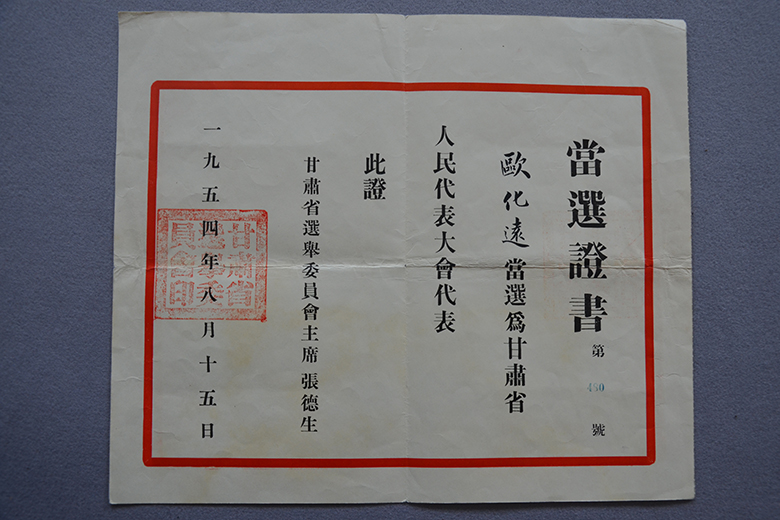 當選證書 第 480 號
歐化遠當選為甘肅省
人民代表大會代表
此證
甘肅省選舉委員會主席 張德生
一九五四年八月十五日
甘肅省選舉委員會印